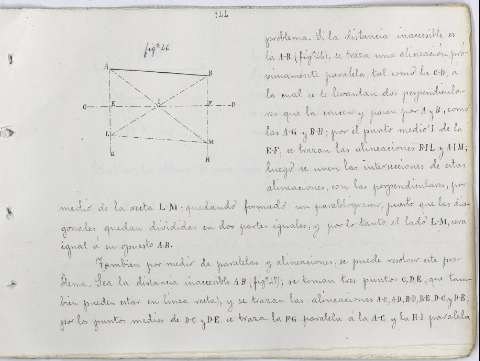 744
figª 46
A
B
C
E
I
F
D
L
M
G
H
problema. Si la distancia inaccesible es
la A B (figª 46), se traza una alineación, pró-
ximamente paralela, tal como la C D, á
la cual se le levantan dos perpendicula-
res que la crucen y pasen por A y B, como
las A G y B H; por el punto medio I, de la
E F, se trazan las alineaciones B I L y A I M;
luego se unen las intersecciones de estas
alineaciones, con las perpendiculares, por
medio de la recta L M, quedando formado un paralelogramo, puesto que las dia-
gonales quedan divididas en dos partes iguales, y por lo tanto el lado L M, será
igual á su opuesto A B.
Tambien por medio de paralelas y alineaciones, se puede resolver este pro-
blema. Sea la distancia inaccesible A B (figª 47); se toman tres puntos C, D, E, que tam-
bien pueden estar en linea recta), y se trazan las alineaciones A C, A D, B D, B E, D C y D E;
por los puntos medios de D C y D E, se traza la F G paralela á la A C y la H I paralela